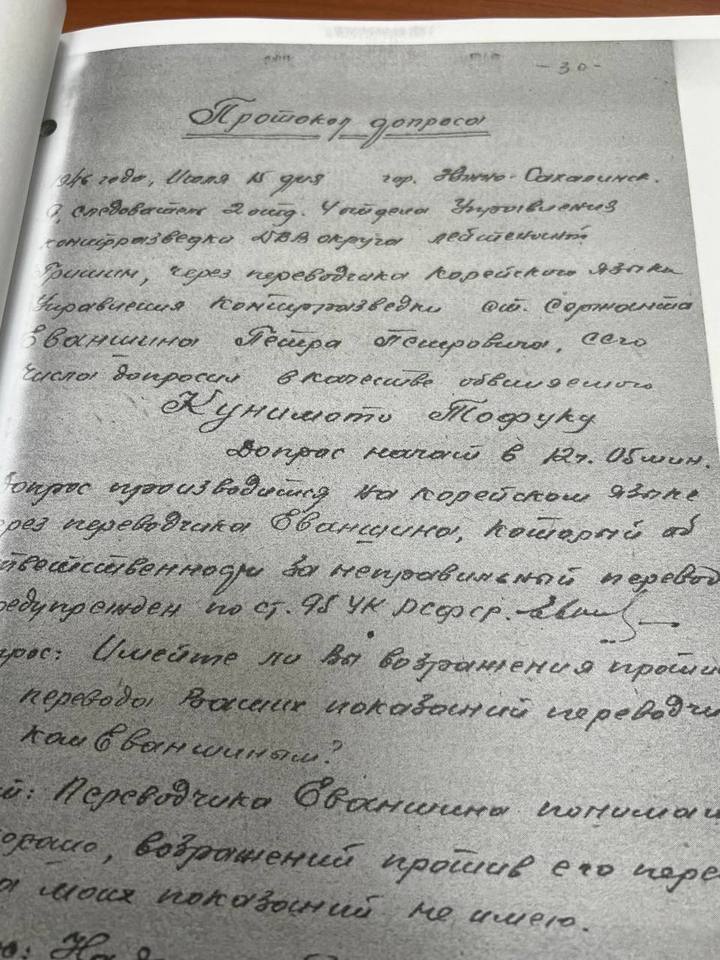 - 30 -
Протокол допроса
1946 года, Июля 15 дня гор. Южно-Сахалинск.
Я, следователь 2 отд. 4 отдела Управления
контрразведки ДВВ округа лейтенант
Гришин, через переводчика корейского языка
Управления контрразведки ст. Сержанта
Еваншина Петра Петровича, сего
числа допросил в качестве обвиняемого
Кунимото Тофуку
Допрос начат в 12ч. 05 мин.
Допрос производится на корейском языке
через переводчика Еваншина, который об
ответственности за неправильный перевод
предупрежден по ст. 95 УК РСФСР.
прос: Имейте ли Вы возражения против
перевода Ваших показаний переводчи
ком Еваншиным?
Переводчика Еваншина понимаю
хорошо, возражений против его пере
да моих показаний не имею.